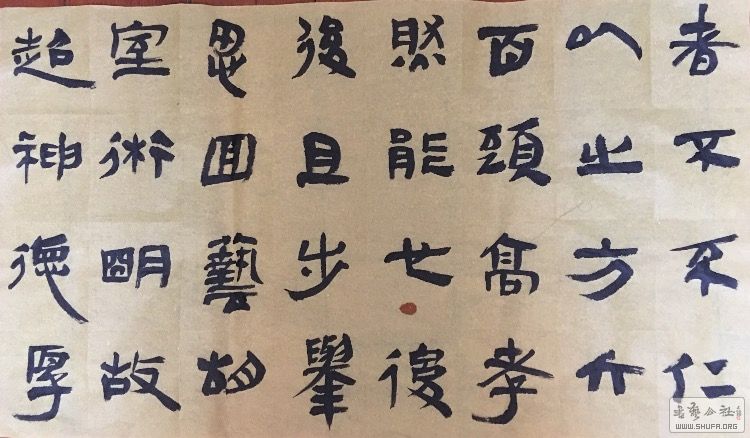 者不不仁
以之方
百頭高孝
然能七復
後且步舉
思回藝胡
室術明故
超神德厚
書藝公社
WWW.SHUFA.ORG